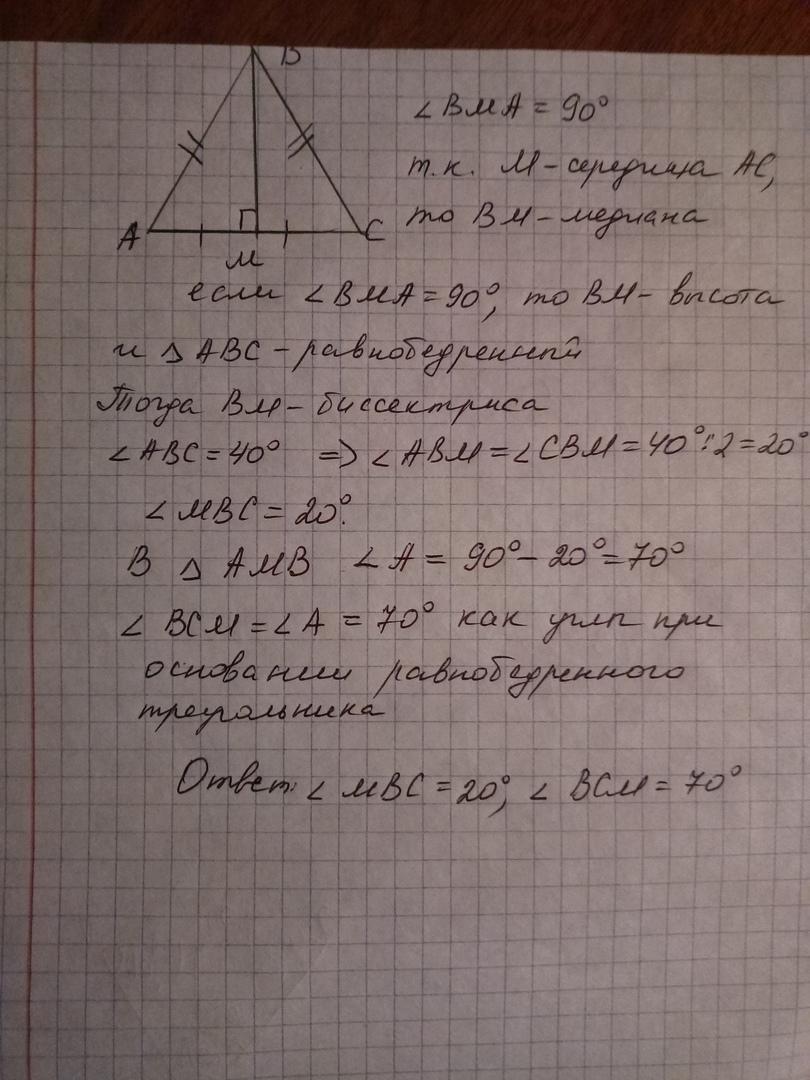 B
∠BMA = 90°
т.к. M - середина AC,
A
C
то BM - медиана
M
если ∠BMA = 90°, то BM - высота
и △ ABC - равнобедренный
Тогда BM - биссектриса
∠ABC = 40° => ∠ABM = ∠CBM = 40° : 2 = 20°
∠MBC = 20°.
В △ AMB ∠A = 90° - 20° = 70°
∠BCM = ∠A = 70° как углы при
основании равнобедренного
треугольника
Ответ: ∠MBC = 20°, ∠BCM = 70°